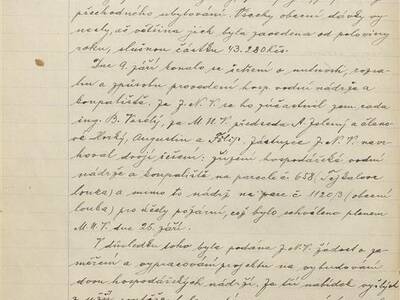 přechodného ubytování. Všechny obecní dávky vy-
nesly, ač většina jich byla zavedena od poloviny
roku, slušnou částku 43.280 Kčs.
Dne 9. září konalo se šetření o nutnosti, rozsa-
hu a způsobu provedení hosp. vodní nádrže a
koupaliště. Za J.N.V. se ho zúčastnil zem. rada
ing. B. Veselý, za M.N.V. předseda A. Zelený a členo-
vé Horký, Augustin a Filip. Zástupce J.N.V. na-
vrhoval dvojí řešení: zřízení hospodářské vodní
nádrže a koupaliště na parcele č. 658 (Tejkalova
louka) a mimo to nádrž na parc. č. 1120/3 (obecní
louka) pro účely požární, což bylo schváleno plenem
M.N.V. dne 25. září.
V důsledku toho byla podána J.N.V. žádost o za-
měření a vypracování projektu na vybudování
dvou hospodářských nádrží. Ze tří nabídek